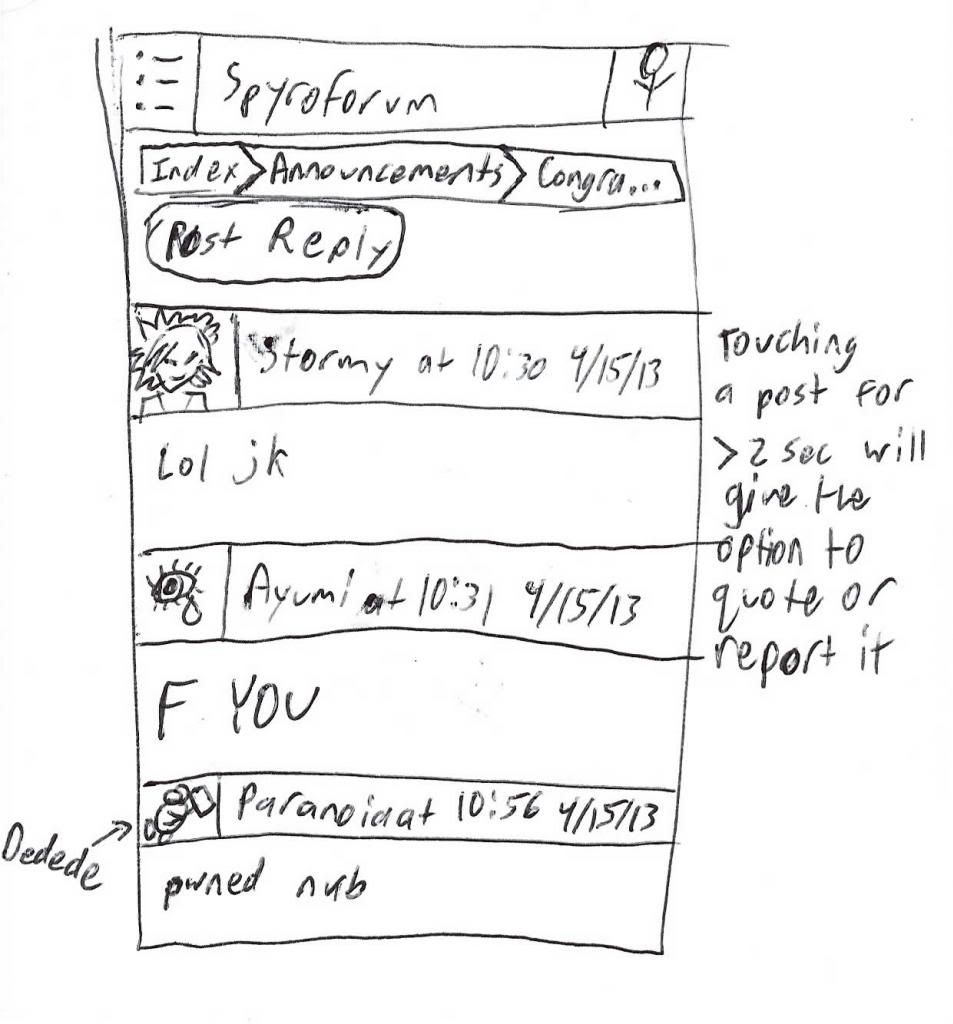 Spyroforum
Index Announcements Congra...
Post Reply
Stormy at 10:30 4/15/13
Lol jk
Ayumi at 10:31 4/15/13
F YOU
Paranoia at 10:56 4/15/13
pwned nub
Touching
a post for
>2 sec will
give the
option to
quote or
report it
Dedede